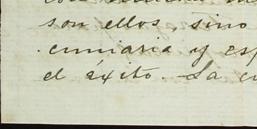 son ellos, sino
cuniaria y esp
el éxito. La cu